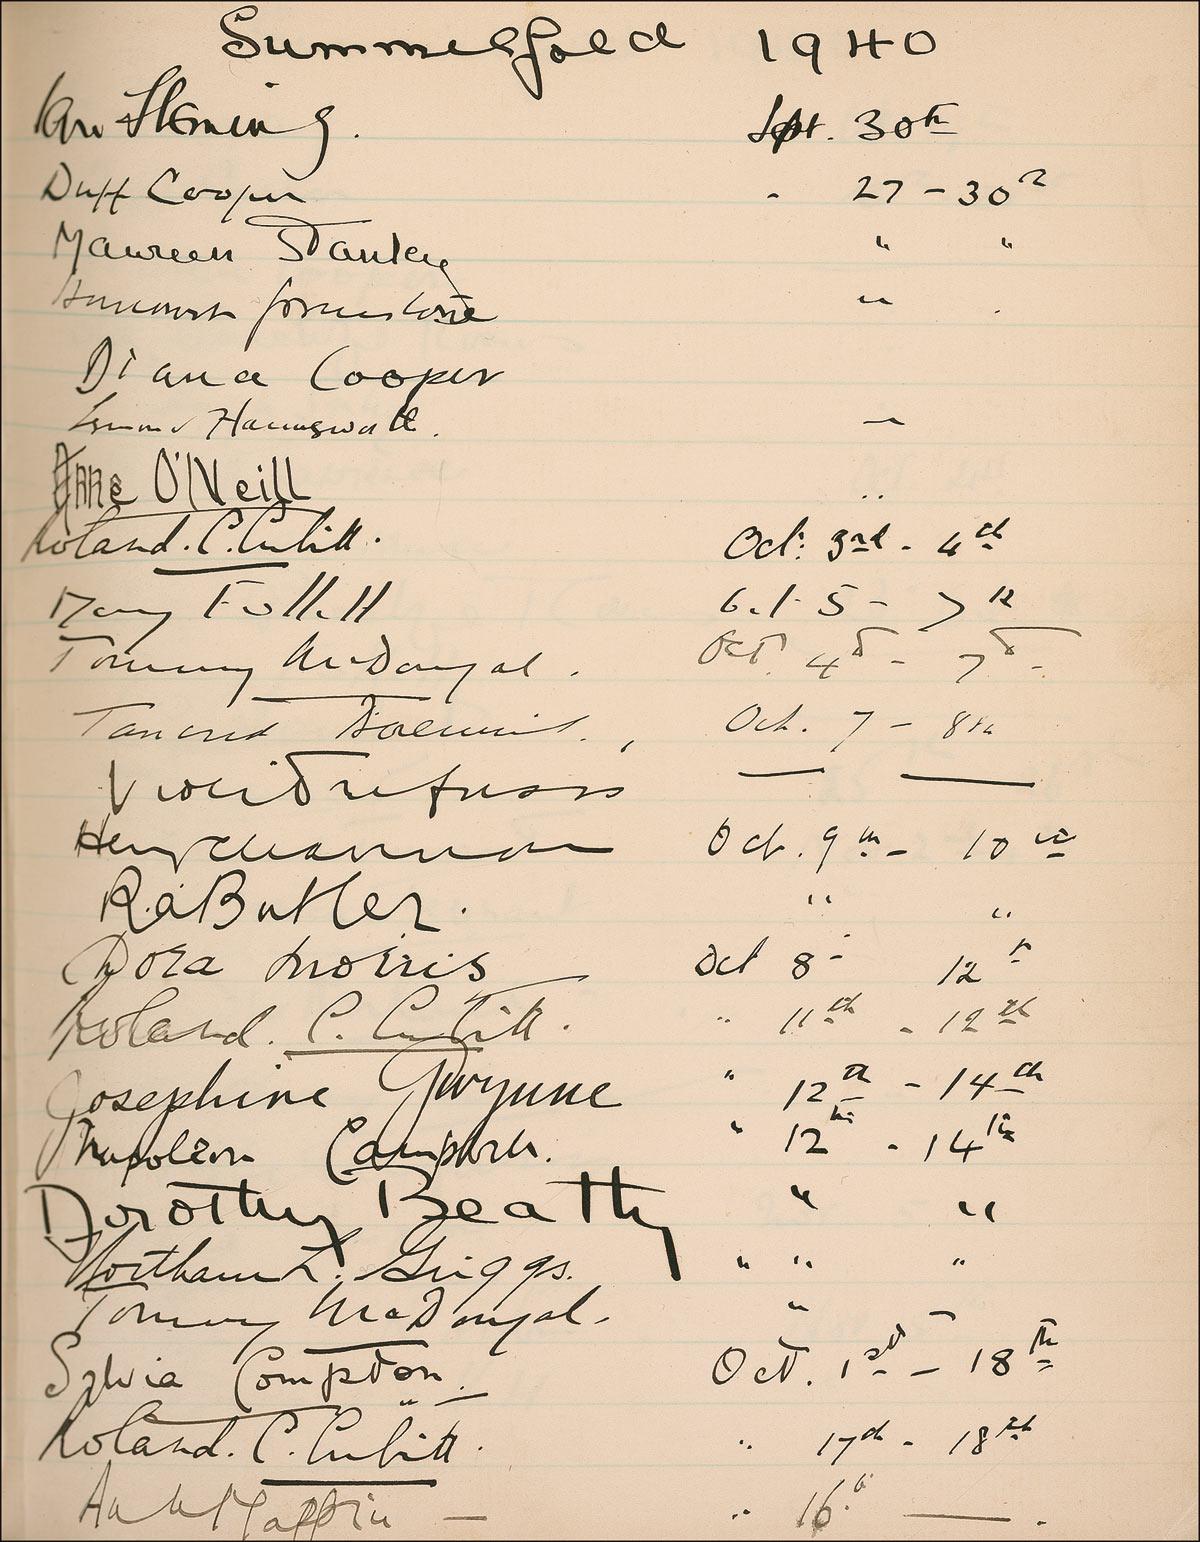 Summerfold 1940
Ian Fleming. Sept. 30th
Duff Cooper " 27 - 30th
Maureen Stanley " "
Harcourt Johnstone "
Diana Cooper
Esmond Harmsworth.
Anne O'Neill "
Roland. C. Cubitt. Oct: 3rd - 4th
Mary Follett Oct 5 - 7th
Tommy McDougal. Oct. 4th - 7th -
Tancred Borenius. Oct. 7 - 8th
Violet Trefusis
Henry Channon Oct. 9th - 10th
R.A Butler. " "
Dora Morris Oct 8 - 12th
Roland. C. Cubitt. " 11th - 12th
Josephine Gwynne " 12th - 14th
" 12th - 14th
Dorothy Beatty " "
Northam L. Griggs. " " "
Tommy McDougal. " -
Sylvia Compton. Oct. 1st - 18th
Roland. C. Cubitt. " 17th - 18th
" 16th